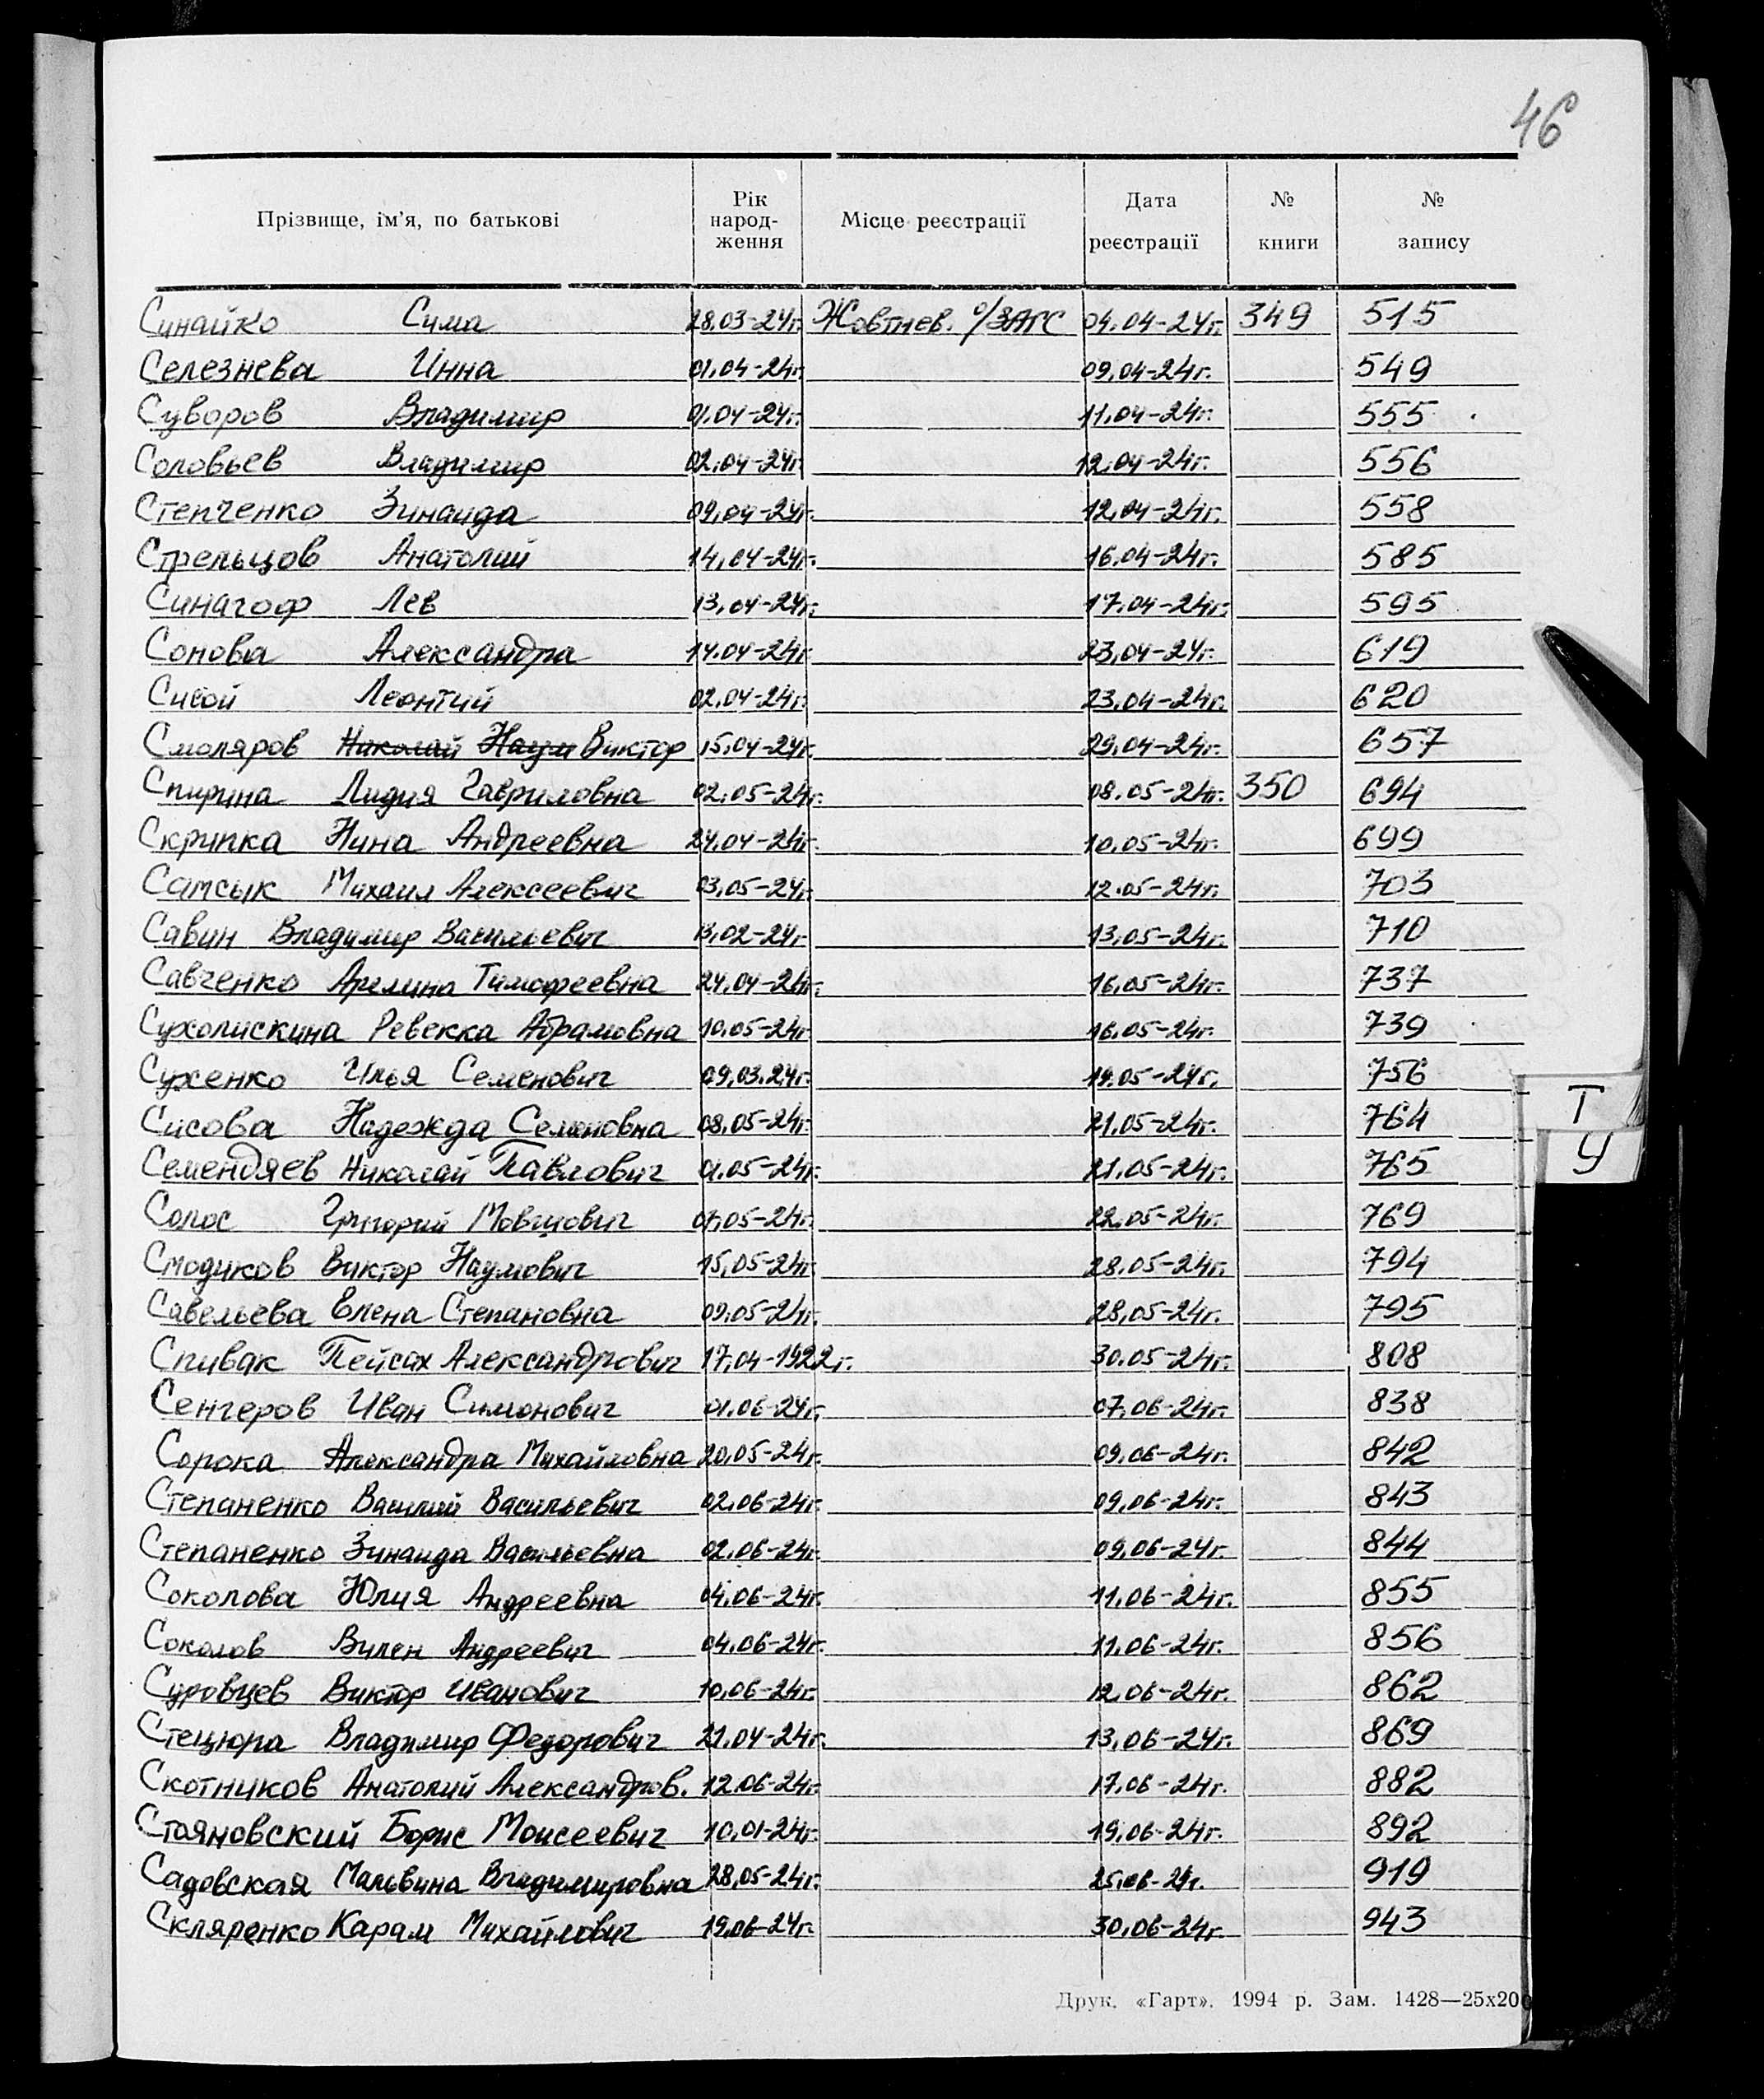 46
Прізвище, ім'я, по батькові Рік народ- ження Місце реєстрації Дата реєстрації № книги № запису
Синайко Сима 28.03-24г. Жовтнев. о/ЗАГС 04.04-24г. 349 515
Селезнева Инна 01.04-24г. 09.04-24г. 549
Суворов Владимир 01.04-24г. 11.04-24г. 555
Соловьев Владимир 02.04-24г. 12.04-24г. 556
Степченко Зинаида 09.04-24г. 12.04-24г. 558
Стрельцов Анатолий 14.04-24г. 16.04-24г. 585
Синагоф Лев 13.04-24г. 17.04-24г. 595
Сонова Александра 14.04-24г. 23.04-24г. 619
Сисой Леонтий 02.04-24г. 23.04-24г. 620
Смоляров Николай Наум Виктор 15.04-24г. 29.04-24г. 657
Спирина Лидия Гавриловна 02.05-24г. 08.05-24г. 350 694
Скрипка Нина Андреевна 24.04-24г. 10.05-24г. 699
Самсык Михаил Алексеевич 03.05-24г. 12.05-24г. 703
Савин Владимир Васильевич 13.02-24г. 13.05-24г. 710
Савченко Тимофеевна 24.04-24г. 16.05-24г. 737
Сухолискина Ревекка Абрамовна 10.05-24г. 16.05-24г. 739
Сухенко Илья Семенович 09.03.24г. 19.05-24г. 756
Сисова Надежда Семеновна 08.05-24г. 21.05-24г. 764
Семендяев Николай Павлович 01.05-24г. 21.05-24г. 765
Солос Григорий Мовшович 22.05-24г. 769
Смодиков Виктор Наумович 15.05-24г. 28.05-24г. 794
Савельева Елена Степановна 09.05-24г. 28.05-24г. 795
Спивак Пейсах Александрович 17.04-1922г. 30.05-24г. 808
Сенгеров Иван Симонович 01.06-24г. 07.06-24г. 838
Сорока Александра Михайловна 20.05-24г. 09.06-24г. 842
Степаненко Василий Васильевич 02.06-24г. 09.06-24г. 843
Степаненко Зинаида Васильевна 02.06-24г. 09.06-24г. 844
Соколова Юлия Андреевна 04.06-24г. 11.06-24г. 855
Соколов Вилен Андреевич 04.06-24г. 11.06-24г. 856
Суровцев Виктор Иванович 10.06-24г. 12.06-24г. 862
Стецюра Владимир Федорович 21.04-24г. 13.06-24г. 869
Скотников Анатолий Александров. 12.06-24г. 17.06-24г. 882
Стояновский Борис Моисеевич 10.01-24г. 19.06-24г. 892
Садовская Мальвина Владимировна 28.05-24г. 25.06-24г. 919
Скляренко Карам Михайлович 19.06-24г. 30.06-24г. 943
Т
У
Друк. «Гарт». 1994 р. Зам. 1428—25х200